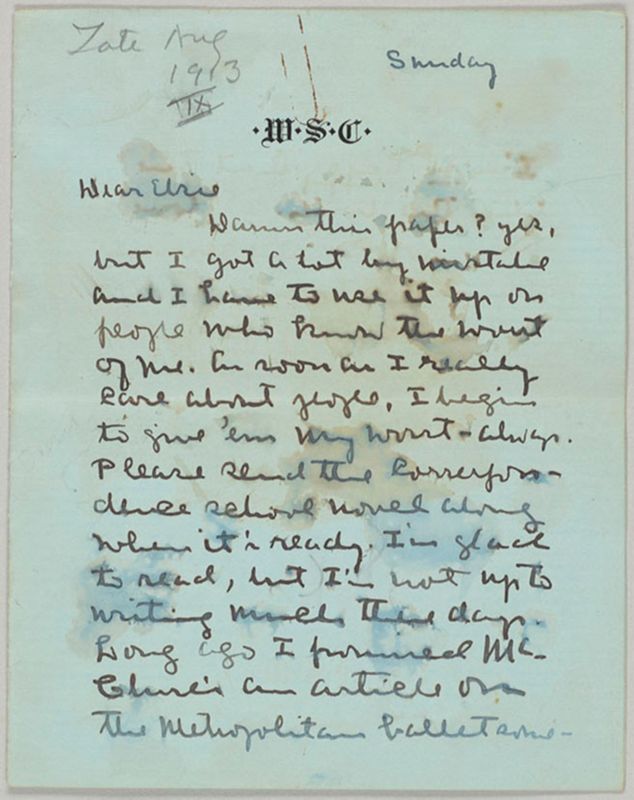 Late Aug
1913
VIX
Sunday
·W·S·C·
Dear Elsie
Damn this paper? yes,
but I got a lot by mistake
and I have to use it up on
people who know the worst
of me. As soon as I really
care about people, I begin
to give 'em my worst - always.
Please send the correspon-
dence school novel along
when it's ready. I'm glad
to read, but I'm not up to
writing much these days.
Long ago I promised Mc-
Clure's an article on
the Metropolitan ballet some-